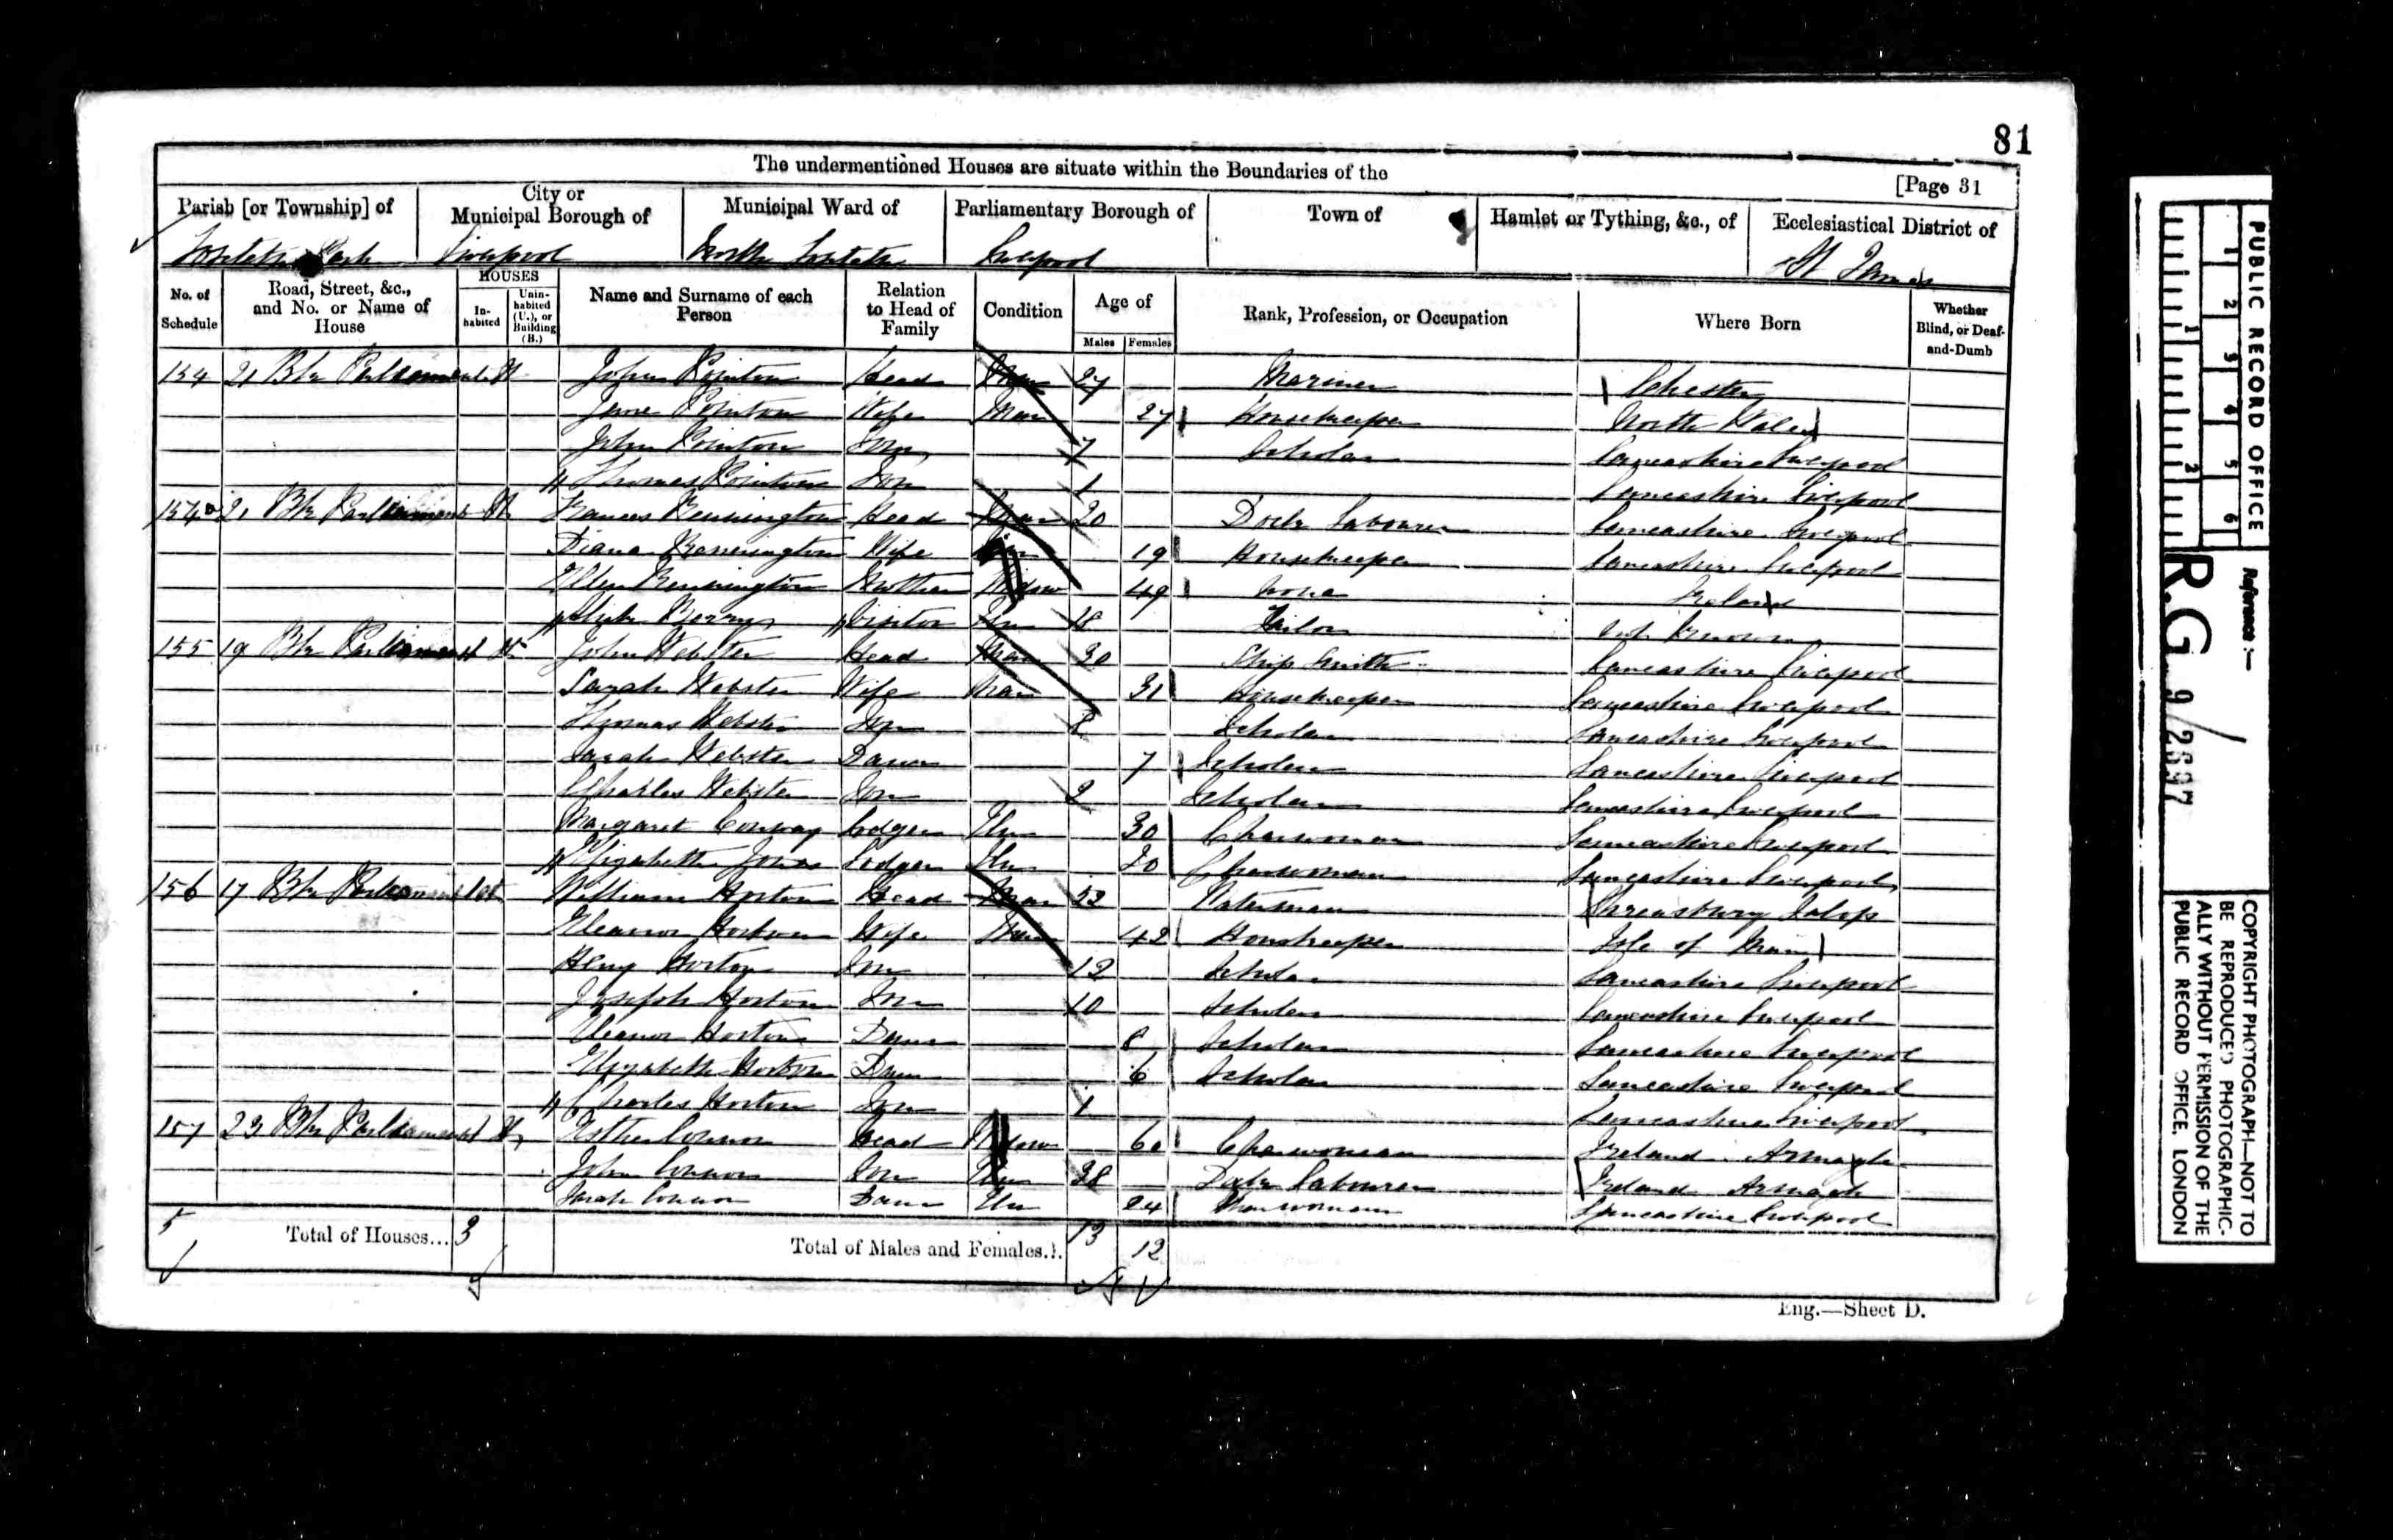 81
The undermentioned Houses are situate within the Boundaries of the
[Page 31
Parish [or Township] of
City or Municipal Borough of
Municipal Ward of
Parliamentary Borough of
Town of
Hamlet or Tything, &c., of
Ecclesiastical District of
Toxteth Park Liverpool North Toxteth Liverpool St James
No. of Schedule
Road, Street, &c., and No. or Name of House
HOUSES
In-habited
Unin-habited (U.), or Building (B.)
Name and Surname of each Person
Relation to Head of Family
Condition
Age of
Males
Females
Rank, Profession, or Occupation
Where Born
Whether Blind, or Deaf-and-Dumb
154 21 Parliament St John Pointon Head Mar 27 Mariner Chester
Jane Pointon Wife Mar 27 Housekeeper North Wales
John Pointon Son 7 Scholar Lancashire Liverpool
Thomas Pointon Son 1 Lancashire Liverpool
154a 21 Parliament St Frances Pennington Head Mar 20 Dock Labourer Lancashire Liverpool
Diana Pennington Wife 19 Housekeeper Lancashire Liverpool
Ellen Pennington Mother Widow 49 None Ireland
Berry Visitor Un 18 Not Known
155 19 Parliament St John Webster Head Mar 30 Ship Smith Lancashire Liverpool
Sarah Webster Wife Mar 31 Housekeeper Lancashire Liverpool
Thomas Webster Son Scholar Lancashire Liverpool
Sarah Webster Daur 7 Scholar Lancashire Liverpool
Charles Webster Son 2 Scholar Lancashire Liverpool
Margaret Conway Lodger Un 30 Charwoman Lancashire Liverpool
Elizabeth Jones Lodger Un 20 Charwoman Lancashire Liverpool
156 17 Parliament St William Horton Head Mar 52 Waterman Shrewsbury Salop
Eleanor Horton Wife Mar 42 Housekeeper Isle of Man
Henry Horton Son 12 Scholar Lancashire Liverpool
Joseph Horton Son 10 Scholar Lancashire Liverpool
Eleanor Horton Daur 8 Scholar Lancashire Liverpool
Elizabeth Horton Daur 6 Scholar Lancashire Liverpool
Charles Horton Son Lancashire Liverpool
157 23 Parliament St Esther Connor Head Widow 60 Charwoman Ireland Armagh
John Connor Son Un 38 Dock Labourer Ireland Armagh
Sarah Connor Daur Un 24 Charwoman Lancashire Liverpool
5 Total of Houses... 3 Total of Males and Females... 13 12
Eng.—Sheet D.
PUBLIC RECORD OFFICE
1 2 3 4 5 6
1 2
Reference :—
R.G. 9/2697
COPYRIGHT PHOTOGRAPH—NOT TO
BE REPRODUCED PHOTOGRAPHIC-
ALLY WITHOUT PERMISSION OF THE
PUBLIC RECORD OFFICE, LONDON